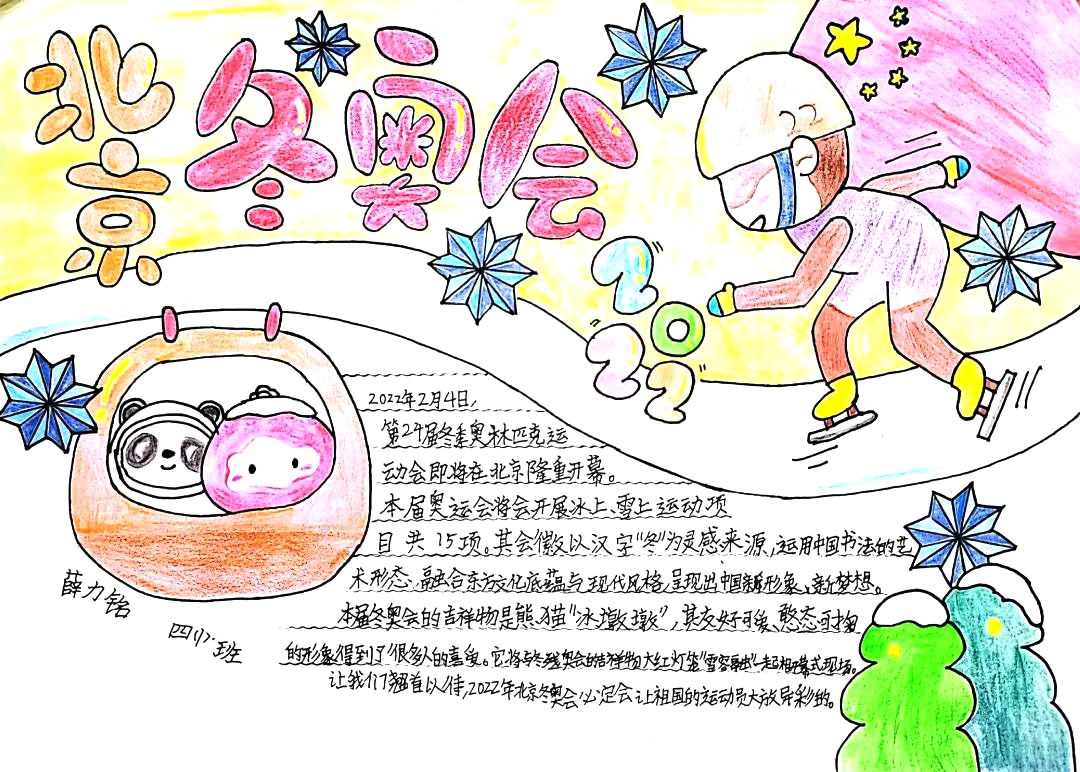 北京
冬奥会
2022
2022年2月4日,
第24届冬季奥林匹克运
动会即将在北京隆重开幕。
本届奥运会将会开展冰上、雪上运动项
目共15项。其会徽以汉字"冬"为灵感来源,运用中国书法的艺
术形态,融合东方文化底蕴与现代风格,呈现出中国新形象、新梦想。
本届冬奥会的吉祥物是熊猫"冰墩墩",其友好可爱、憨态可掬
的形象得到了很多人的喜爱。它将与冬残奥会的吉祥物大红灯笼"雪容融"一起相聚式现场。
让我们翘首以待,2022年北京冬奥会必定会让祖国的运动员大放异彩的。
薛力铭
四班